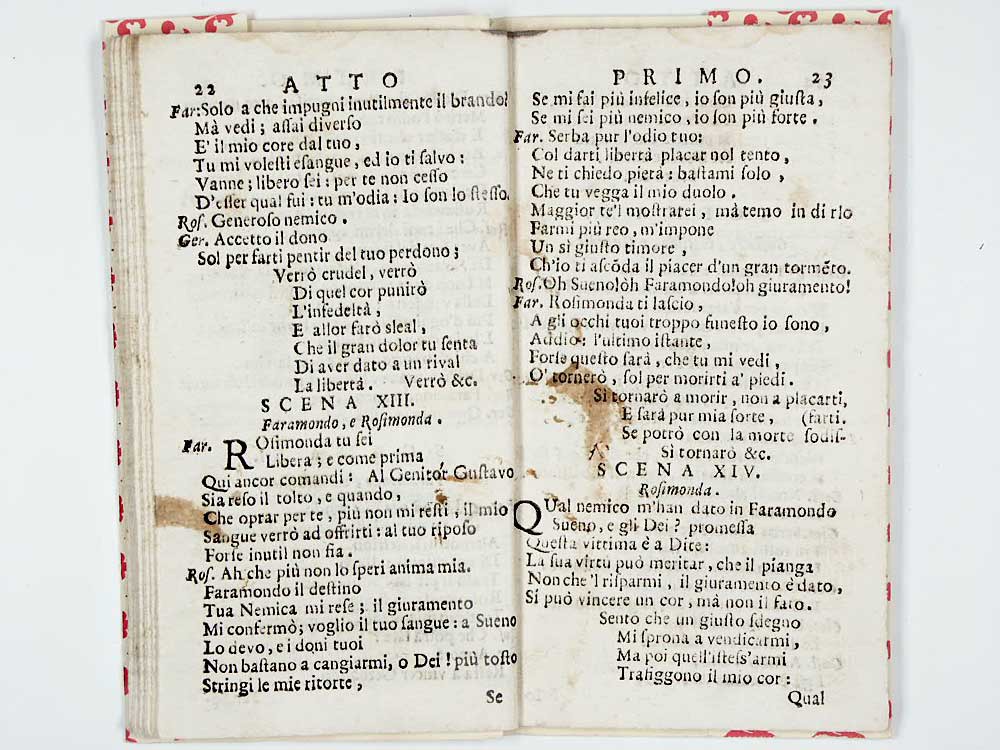 22 ATTO
Far: Solo a che impugni inutilmente il brando!
Mà vedi; aſſai diverſo
E' il mio core dal tuo,
Tu mi voleſti eſangue, ed io ti ſalvo:
Vanne; libero ſei: per te non ceſſo
D'eſſer qual fui: tu m'odia: Io ſon lo ſteſſo.
Roſ. Generoſo nemico.
Ger. Accetto il dono
Sol per farti pentir del tuo perdono;
Verrò crudel, verrò
Di quel cor punirò
L'infedeltà,
E allor farò sleal,
Che il gran dolor tu ſenta
Di aver dato a un rival
La libertà. Verrò &c.
SCENA XIII.
Faramondo, e Roſimonda.
Far. ROſimonda tu ſei
Libera; e come prima
Qui ancor comandi: Al Genitor Guſtavo
Sia reſo il tolto, e quando,
Che oprar per te, più non mi reſti, il mio
Sangue verrò ad offrirti: al tuo ripoſo
Forſe inutil non fia.
Roſ. Ah che più non lo ſperi anima mia.
Faramondo il deſtino
Tua Nemica mi reſe; il giuramento
Mi confermò; voglio il tuo ſangue: a Sueno
Lo devo, e i doni tuoi
Non baſtano a cangiarmi, o Dei! più toſto
Stringi le mie ritorte,
Se
PRIMO. 23
Se mi fai più infelice, io ſon più giuſta,
Se mi ſei più nemico, io ſon più forte.
Far. Serba pur l'odio tuo:
Col darti libertà placar nol tento,
Ne ti chiedo pietà: baſtami ſolo,
Che tu vegga il mio duolo.
Maggior te'l moſtrarei, mà temo in di rlo
Farmi più reo, m'impone
Un sì giuſto timore,
Ch'io ti aſcõda il piacer d'un gran tormẽto.
Roſ. Oh Sueno! òh Faramondo! oh giuramento!
Far. Roſimonda ti laſcio,
A gli occhi tuoi troppo funeſto io ſono,
Addio: l'ultimo iſtante,
Forſe queſto ſarà, che tu mi vedi,
O' tornerò, ſol per morirti a' piedi.
Si tornarò a morir, non a placarti,
E ſarà pur mia ſorte, (farti.
Se potrò con la morte ſodiſ-
Si tornarò &c.
SCENA XIV.
Roſimonda.
QUal nemico m'han dato in Faramondo
Sueno, e gli Dei? promeſſa
Queſta vittima è a Dite:
La ſua virtù può meritar, che il pianga
Non che 'l riſparmi, il giuramento è dato,
Si può vincere un cor, mà non il fato.
Sento che un giuſto ſdegno
Mi ſprona a vendicarmi,
Ma poi quell'iſteſs'armi
Trafiggono il mio cor:
Qual